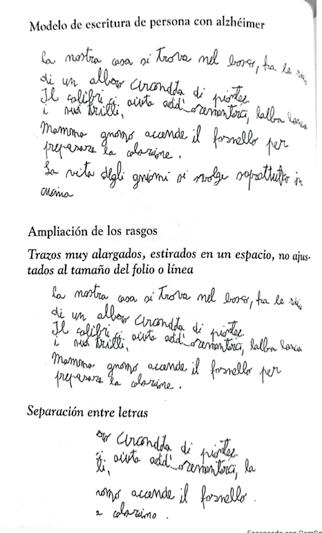 Modelo de escritura de persona con alzhéimer
la nostra casa si trova nel bosco, fra le
di un albero circondta di piante
Il colibrì ci aiuta add
i suoi trilli,
Mammo gnomo accende il fornello per
preparare la colazione.
La vita degli gnomi si svolge soprattutto in
cucina
Ampliación de los rasgos
Trazos muy alargados, estirados en un espacio, no ajus-
tados al tamaño del folio o línea
la nostra casa si trova nel bosco, fra le
di un albero circondta di piante
Il colibrì ci aiuta add
i suoi trilli,
Mammo gnomo accende il fornello per
preparare la colazione.
Separación entre letras
circondta di piante
ci aiuta add la
nomo accende il fornello
e colazione.